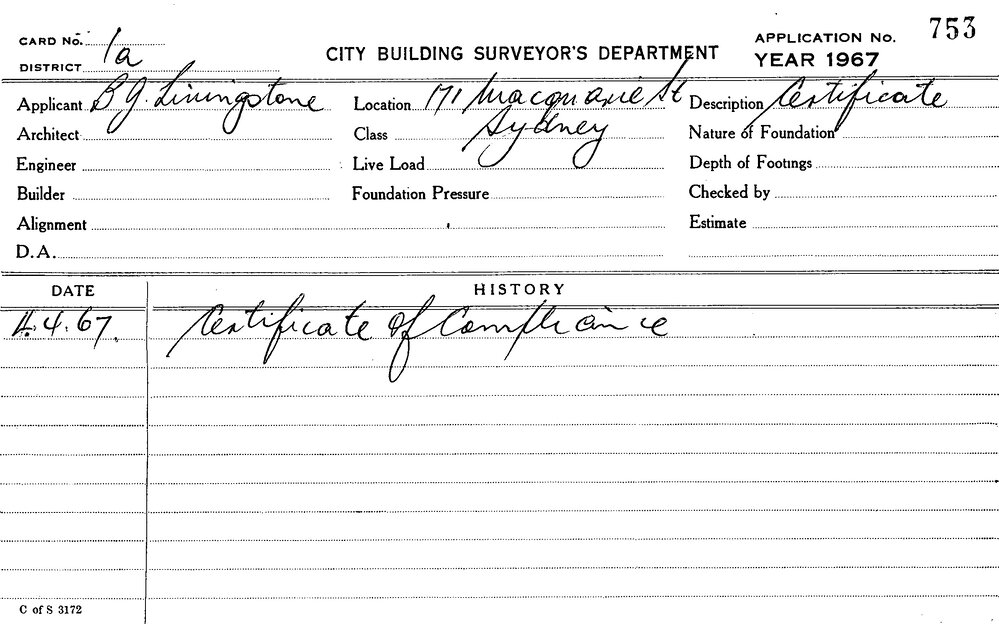 CARD No. 1a
DISTRICT
CITY BUILDING SURVEYOR'S DEPARTMENT
APPLICATION No. 753
YEAR 1967
Applicant B J. Livingstone Location 171 Macquarie St Description Certificate
Architect Class Sydney Nature of Foundation
Engineer Live Load Depth of Footings
Builder Foundation Pressure Checked by
Alignment Estimate
D.A.
DATE HISTORY
4.4.67. Certificate of Compliance
C of S 3172